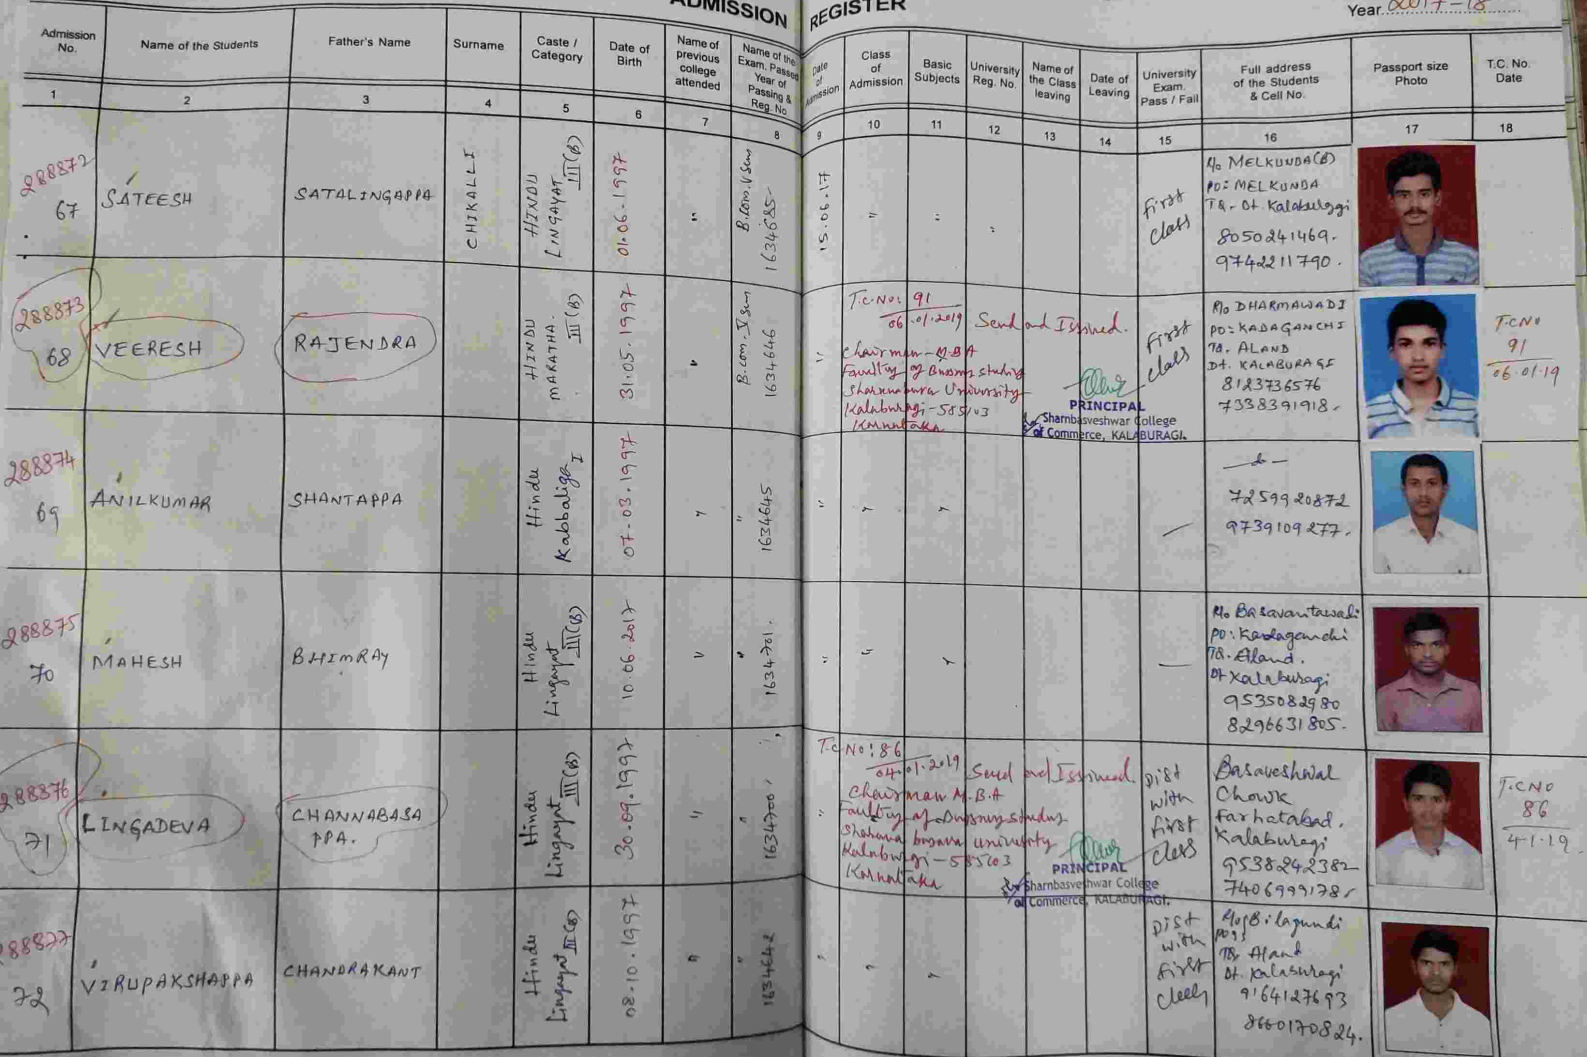 ADMISSION REGISTER
Year 2017-18
Admission No.
Name of the Students
Father's Name
Surname
Caste / Category
Date of Birth
Name of previous college attended
Name of the Exam. Passed Year of Passing & Reg. No
Date of Admission
Class of Admission
Basic Subjects
University Reg. No.
Name of the Class leaving
Date of Leaving
University Exam. Pass / Fail
Full address of the Students & Cell No.
Passport size Photo
T.C. No. Date
1 2 3 4 5 6 7 8 9 10 11 12 13 14 15 16 17 18
288872
67
SATEESH
SATALINGAPPA
CHIKALLI
HINDU
LINGAYAT III(B)
01.06.1997
"
B.com.V Sem
1634685-
15.06.17
"
First class
R/o MELKUNDA(B)
PO: MELKUNDA
TQ- Dt. Kalaburagi
8050241469.
9742211790.
288873
68
VEERESH
RAJENDRA
HINDU
MARATHA. III(B)
31.05.1997
B.com. V Sem
1634646
T.C.No: 91
06.01.2019
Send and Issued.
Chairman - M.B.A
Faculty of Business studies
Sharnabasva University
Kalaburagi-585103
Karnataka
PRINCIPAL
Sharnbasveshwar College
of Commerce, KALABURAGI.
First class
R/o DHARMAWADI
PO: KADAGANCHI
TQ. ALAND
Dt. KALABURAGI
8123736576
7338391918.
T.C NO
91
06.01.19
288874
69
ANILKUMAR
SHANTAPPA
Hindu
Kabbaliga I
07-03.1997
"
1634645
7259920872
9739109277.
288875
70
MAHESH
BHIMRAY
Hindu
Lingayat III(B)
10.06.2017
1634701.
R/o Basavantawadi
PO: Kadaganchi
TQ. Aland.
Dt Kalaburagi
9535082980
8296631805.
288876
71
LINGADEVA
CHANNABASA
PPA.
Hindu
Lingayat III(B)
30.09.1997
"
1634700
T.C No: 86
04.01.2019
Send and Issued.
Chairman M.B.A
Faculty of Business studies
Sharana basava University
Kalaburagi-585103
Karnataka
PRINCIPAL
Sharnbasveshwar College
of Commerce, KALABURAGI.
Dist with first class
Basaveshwar
Chowk
Farhatabad.
Kalaburagi
9538242382
7406999178.
T.C NO
86
4.1.19.
288877
72
VIRUPAKSHAPPA
CHANDRAKANT
Hindu
Lingayat III(B)
08.10.1997
"
1634642
Dist with first class
R/o Bilagundi
TQ. Aland
Dt. Kalaburagi
9164127693
8660170824.